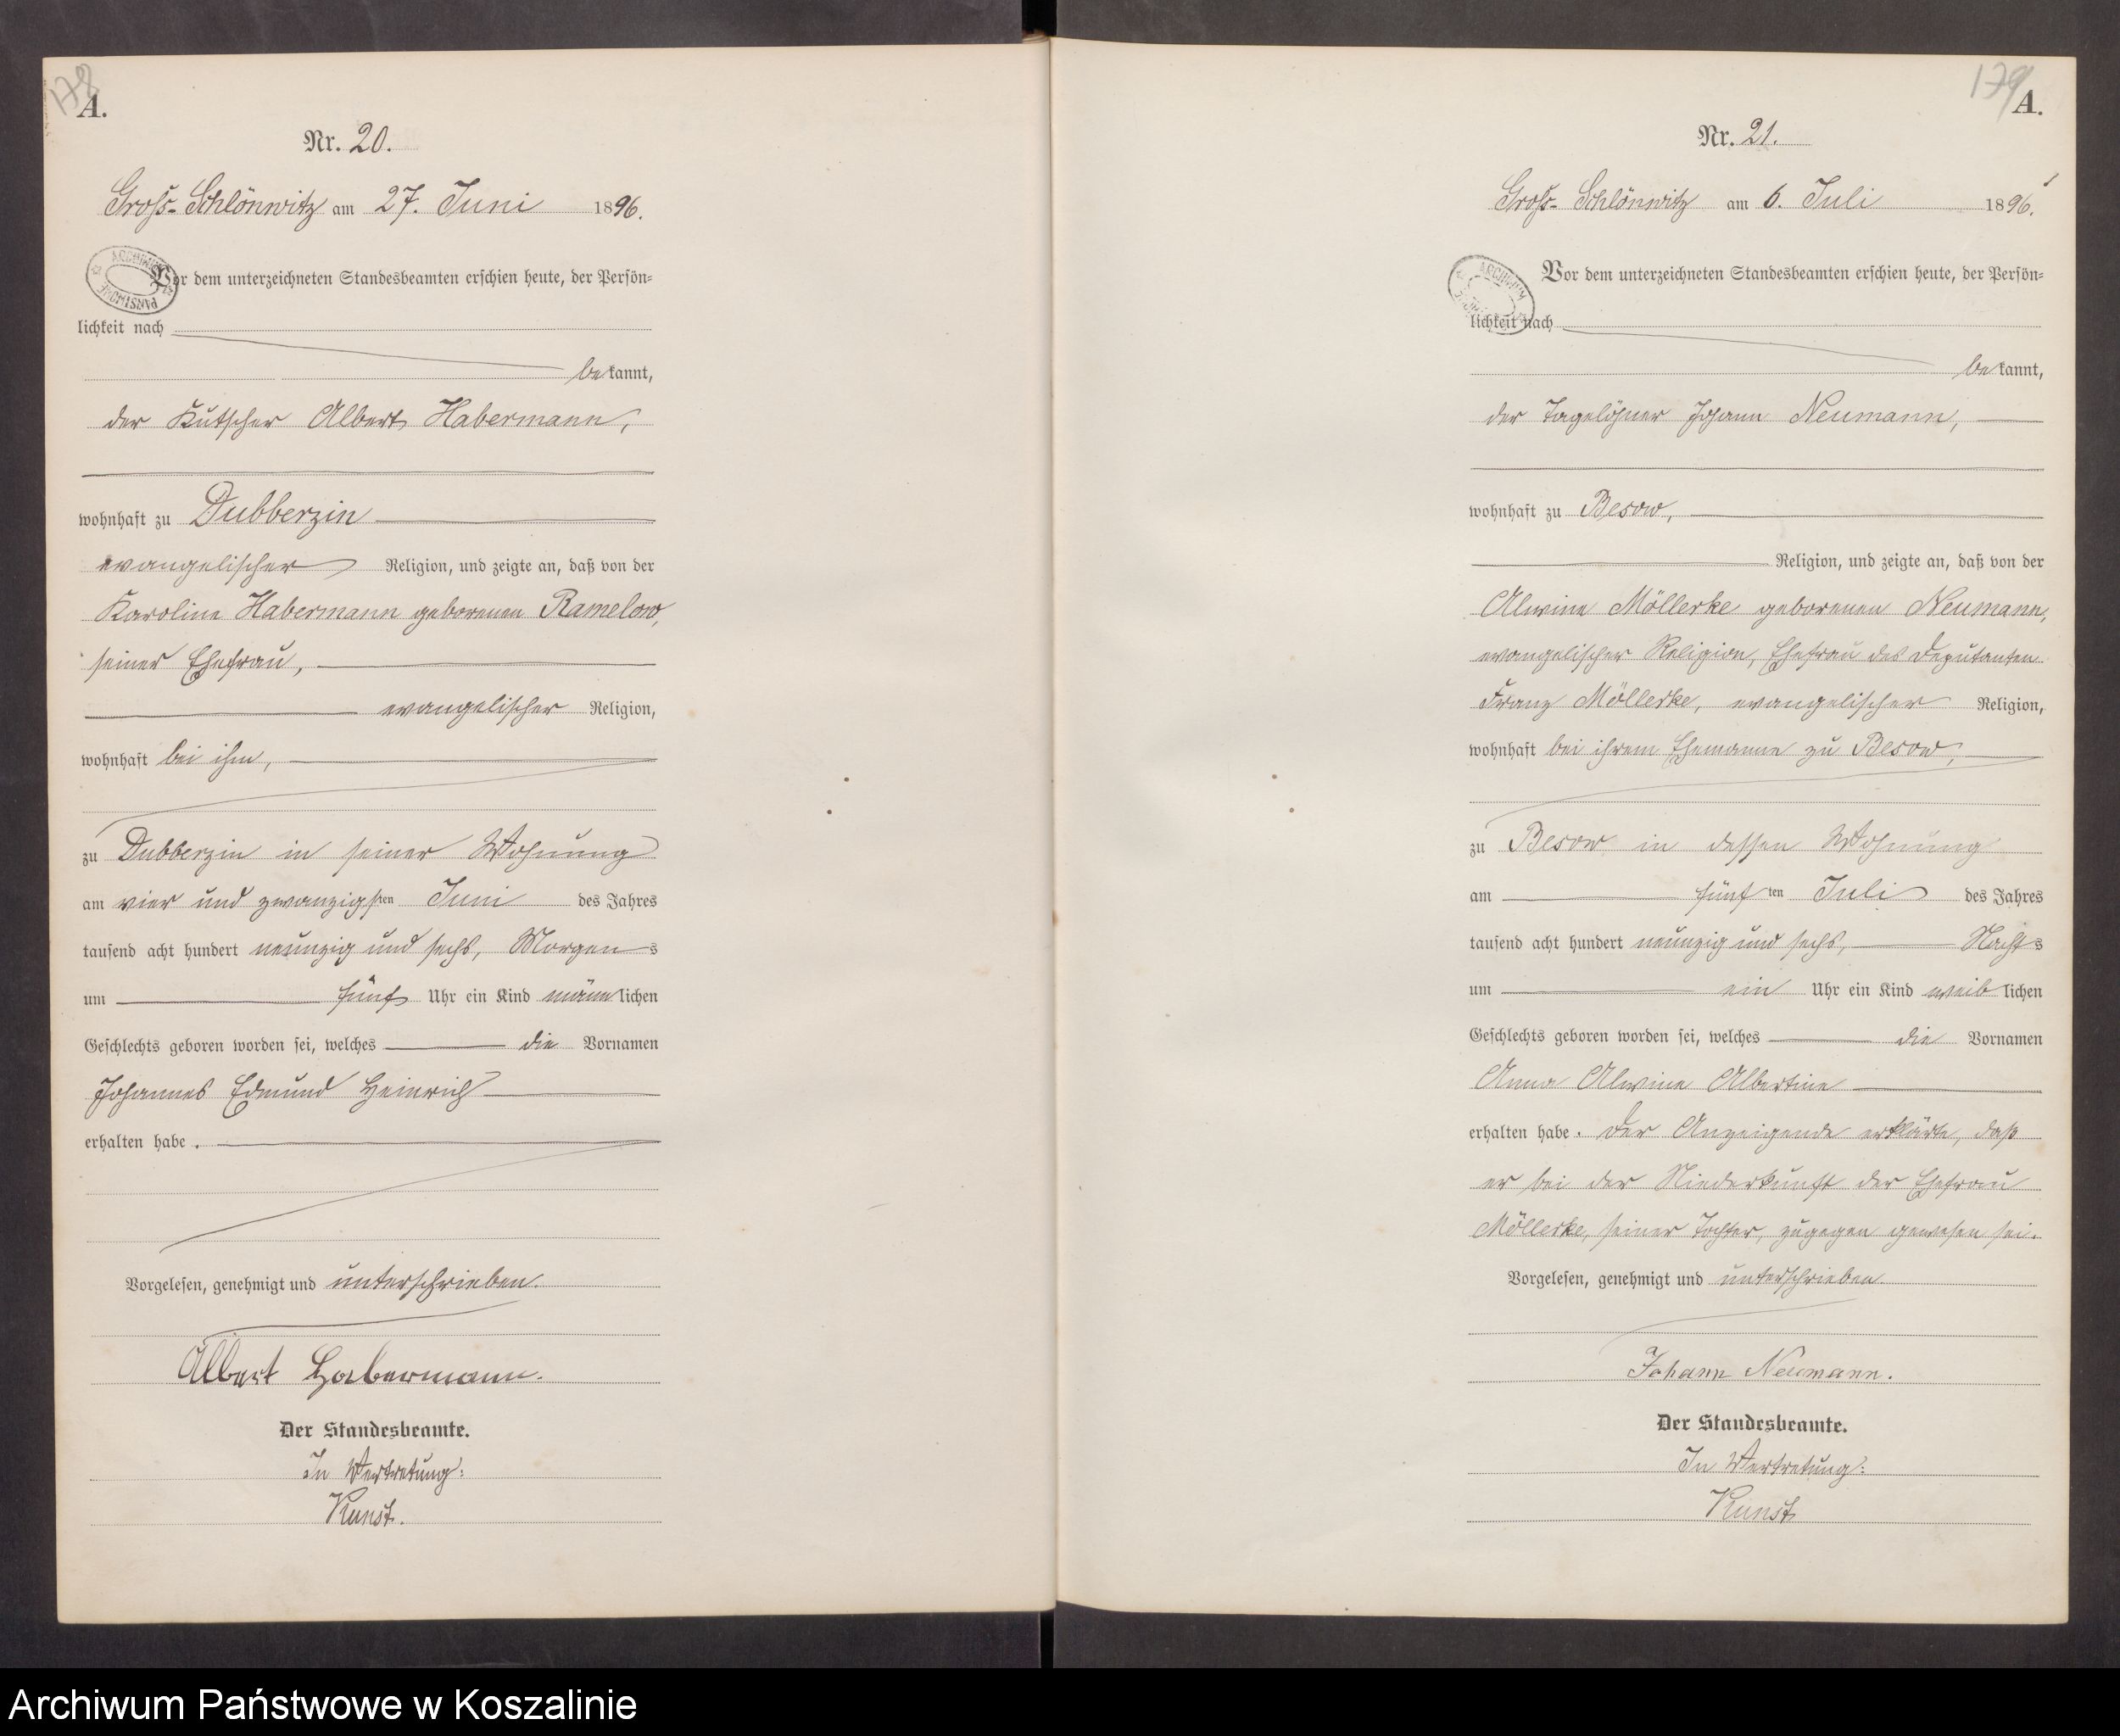 178
A.
Nr. 20.
Groß-Schlönwitz am 27. Juni 1896.
ARCHIWUM PAŃSTWOWE
Vor dem unterzeichneten Standesbeamten erschien heute, der Persön=
lichkeit nach
bekannt,
der Kutscher Albert Habermann,
wohnhaft zu Dubberzin
evangelischer Religion, und zeigte an, daß von der
Karoline Habermann geborenen Ramelow,
seiner Ehefrau,
evangelischer Religion,
wohnhaft bei ihm,
zu Dubberzin in seiner Wohnung
am vier und zwanzigsten Juni des Jahres
tausend acht hundert neunzig und sechs, Morgens
um fünf Uhr ein Kind männlichen
Geschlechts geboren worden sei, welches die Vornamen
Johannes Edmund Heinrich
erhalten habe.
Vorgelesen, genehmigt und unterschrieben.
Albert Habermann.
Der Standesbeamte.
In Vertretung:
Kunst.
179
A.
Nr. 21.
Groß-Schlönwitz am 6. Juli 1896.
ARCHIWUM
Vor dem unterzeichneten Standesbeamten erschien heute, der Persön=
lichkeit nach
bekannt,
der Tagelöhner Johann Neumann,
wohnhaft zu Besow,
Religion, und zeigte an, daß von der
Alwine Möllerke geborenen Neumann,
evangelischer Religion, Ehefrau des Deputanten
Franz Möllerke, evangelischer Religion,
wohnhaft bei ihrem Ehemanne zu Besow,
zu Besow in dessen Wohnung
am fünften Juli des Jahres
tausend acht hundert neunzig und sechs, Nachts
um ein Uhr ein Kind weiblichen
Geschlechts geboren worden sei, welches die Vornamen
Anna Alwine Albertine
erhalten habe. Der Anzeigende erklärte, daß
er bei der Niederkunft der Ehefrau
Möllerke, seiner Tochter, zugegen gewesen sei.
Vorgelesen, genehmigt und unterschrieben.
Johann Neumann.
Der Standesbeamte.
In Vertretung:
Kunst
Archiwum Państwowe w Koszalinie